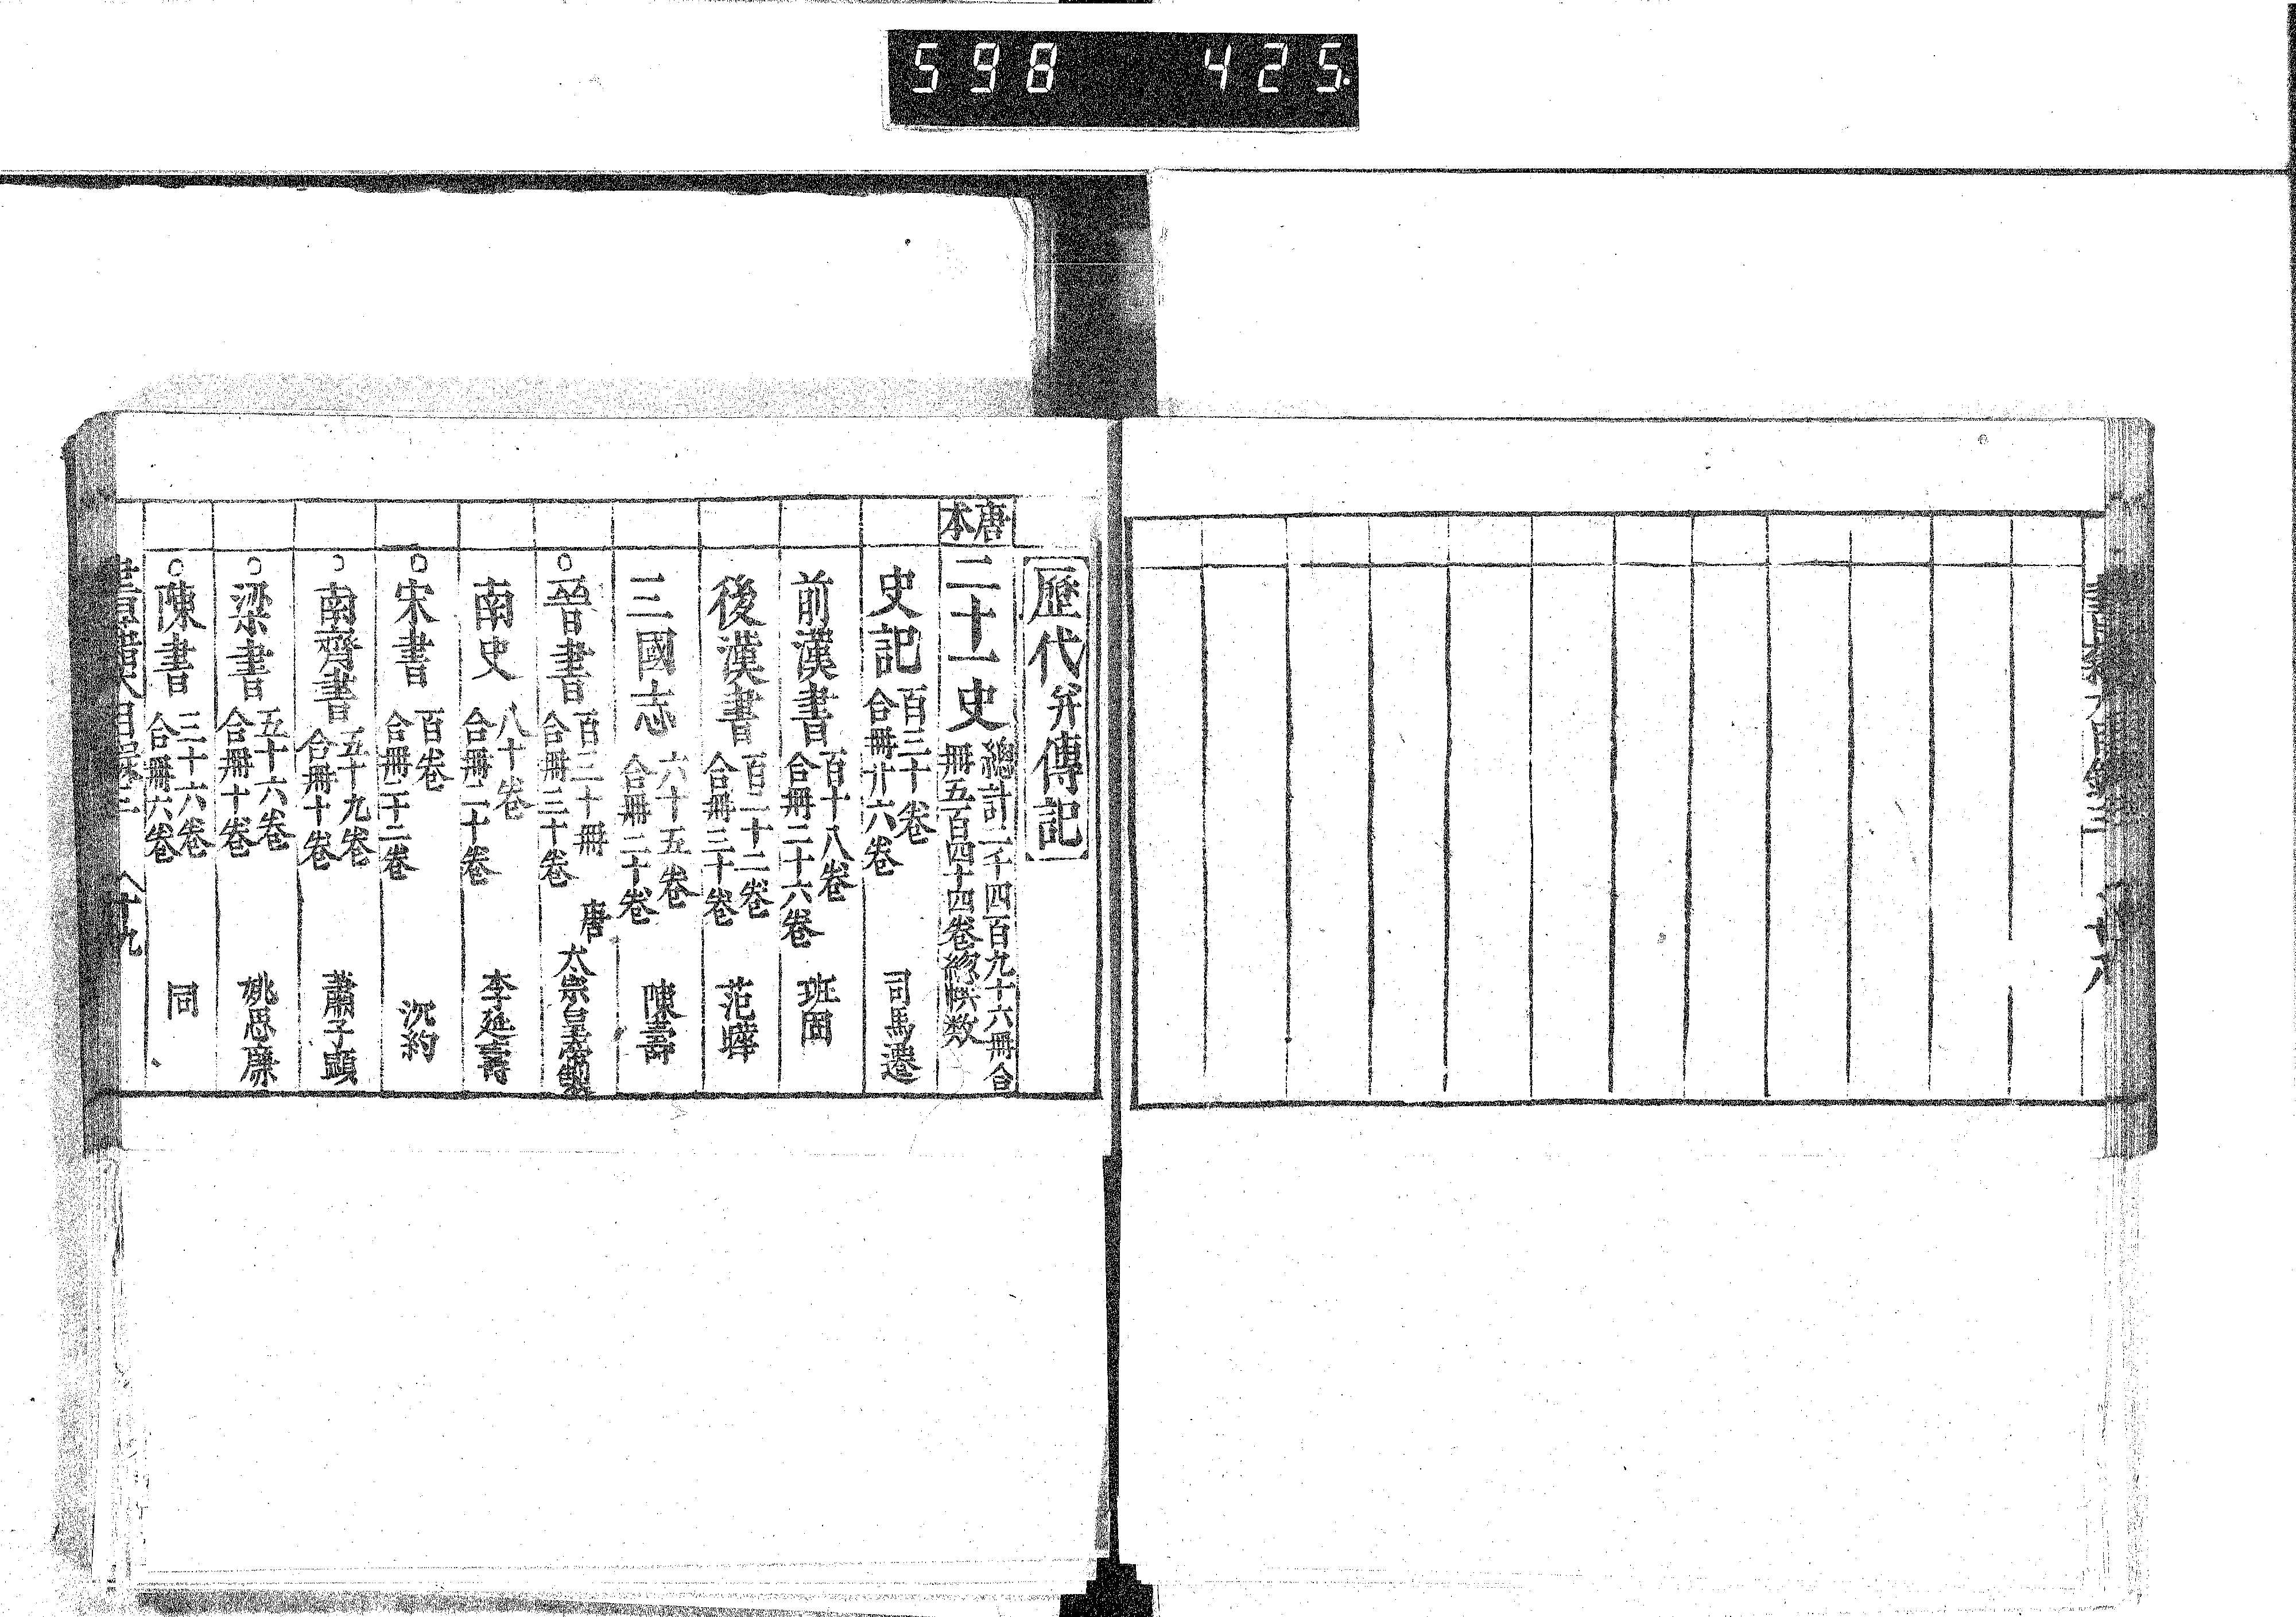 598 425.
八
歷代并傳記
唐本
二十一史 總計二千四百九十六冊合冊五百四十四卷總帙数
史記 百三十卷合冊廿六卷 司馬遷
前漢書 百十八卷合冊二十六卷 班固
後漢書 百二十二卷合冊三十卷 范曄
三國志 六十五卷合冊二十卷 陳壽
○晉書 百三十冊合冊三十卷 唐太宗皇
南史 八十卷合冊二十卷 李延壽
○宋書 百卷合冊二十二卷 沉約
○南齊書 五十九卷合冊十卷 蕭子顕
○梁書 五十六卷合冊十卷 姚思廉
○陳書 三十六卷合冊六卷 同
十九